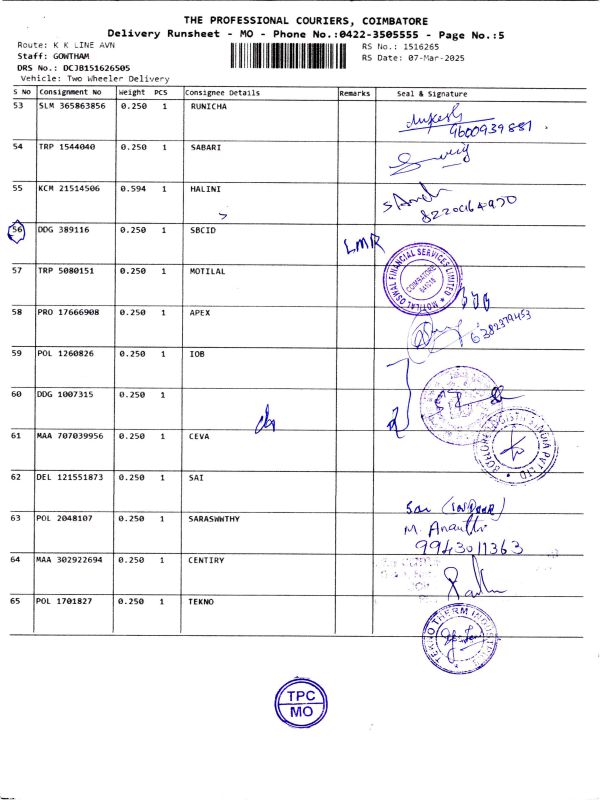 THE PROFESSIONAL COURIERS, COIMBATORE
Delivery Runsheet - MO - Phone No.:0422-3505555 - Page No.:5
Route: K K LINE AVN
RS No.: 1516265
Staff: GOWTHAM
RS Date: 07-Mar-2025
DRS No.: DCJB151626505
Vehicle: Two Wheeler Delivery
S No Consignment No Weight PCS Consignee Details Remarks Seal & Signature
53 SLM 365863856 0.250 1 RUNICHA
9600939881
54 TRP 1544040 0.250 1 SABARI
55 KCM 21514506 0.594 1 HALINI
8220064970
56 DDG 389116 0.250 1 SBCID LMR
57 TRP 5080151 0.250 1 MOTILAL
MOTILAL OSWAL FINANCIAL SERVICES LIMITED
COIMBATORE
58 PRO 17666908 0.250 1 APEX
6382379453
59 POL 1260826 0.250 1 IOB
60 DDG 1007315 0.250 1
61 MAA 707039956 0.250 1 CEVA
62 DEL 121551873 0.250 1 SAI
63 POL 2048107 0.250 1 SARASWWTHY
M. Ananthi
9943011363
64 MAA 302922694 0.250 1 CENTIRY
65 POL 1701827 0.250 1 TEKNO
TEKNO THERM
TPC
MO